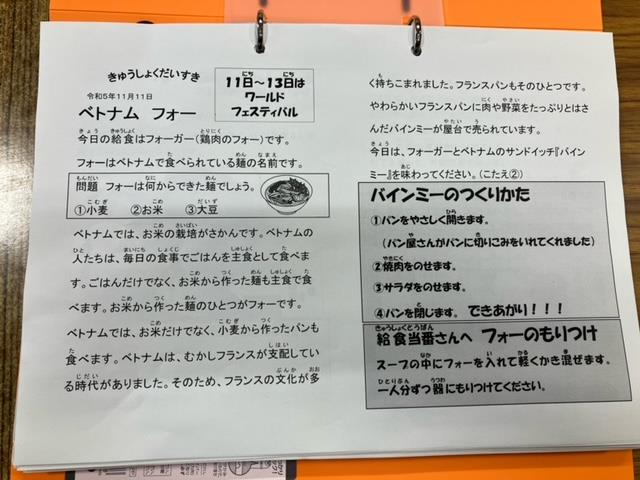 きゅうしょくだいすき
令和5年11月11日
ベトナム フォー
11日～13日は
ワールド
フェスティバル
今日の給食はフォーガー(鶏肉のフォー)です。
フォーはベトナムで食べられている麺の名前です。
問題 フォーは何からできた麺でしょう。
①小麦 ②お米 ③大豆
ベトナムでは、お米の栽培がさかんです。ベトナムの
人たちは、毎日の食事でごはんを主食として食べま
す。ごはんだけでなく、お米から作った麺も主食で食
べます。お米から作った麺のひとつがフォーです。
ベトナムでは、お米だけでなく、小麦から作ったパンも
食べます。ベトナムは、むかしフランスが支配してい
る時代がありました。そのため、フランスの文化が多
く持ちこまれました。フランスパンもそのひとつです。
やわらかいフランスパンに肉や野菜をたっぷりとはさ
んだバインミーが屋台で売られています。
今日は、フォーガーとベトナムのサンドイッチ『バイン
ミー』を味わってください。(こたえ②)
バインミーのつくりかた
①パンをやさしく開きます。
(パン屋さんがパンに切りこみをいれてくれました)
②焼肉をのせます。
③サラダをのせます。
④パンを閉じます。 できあがり！！！
給食当番さんへ フォーのもりつけ
スープの中にフォーを入れて軽くかき混ぜます。
一人分ずつ器にもりつけてください。